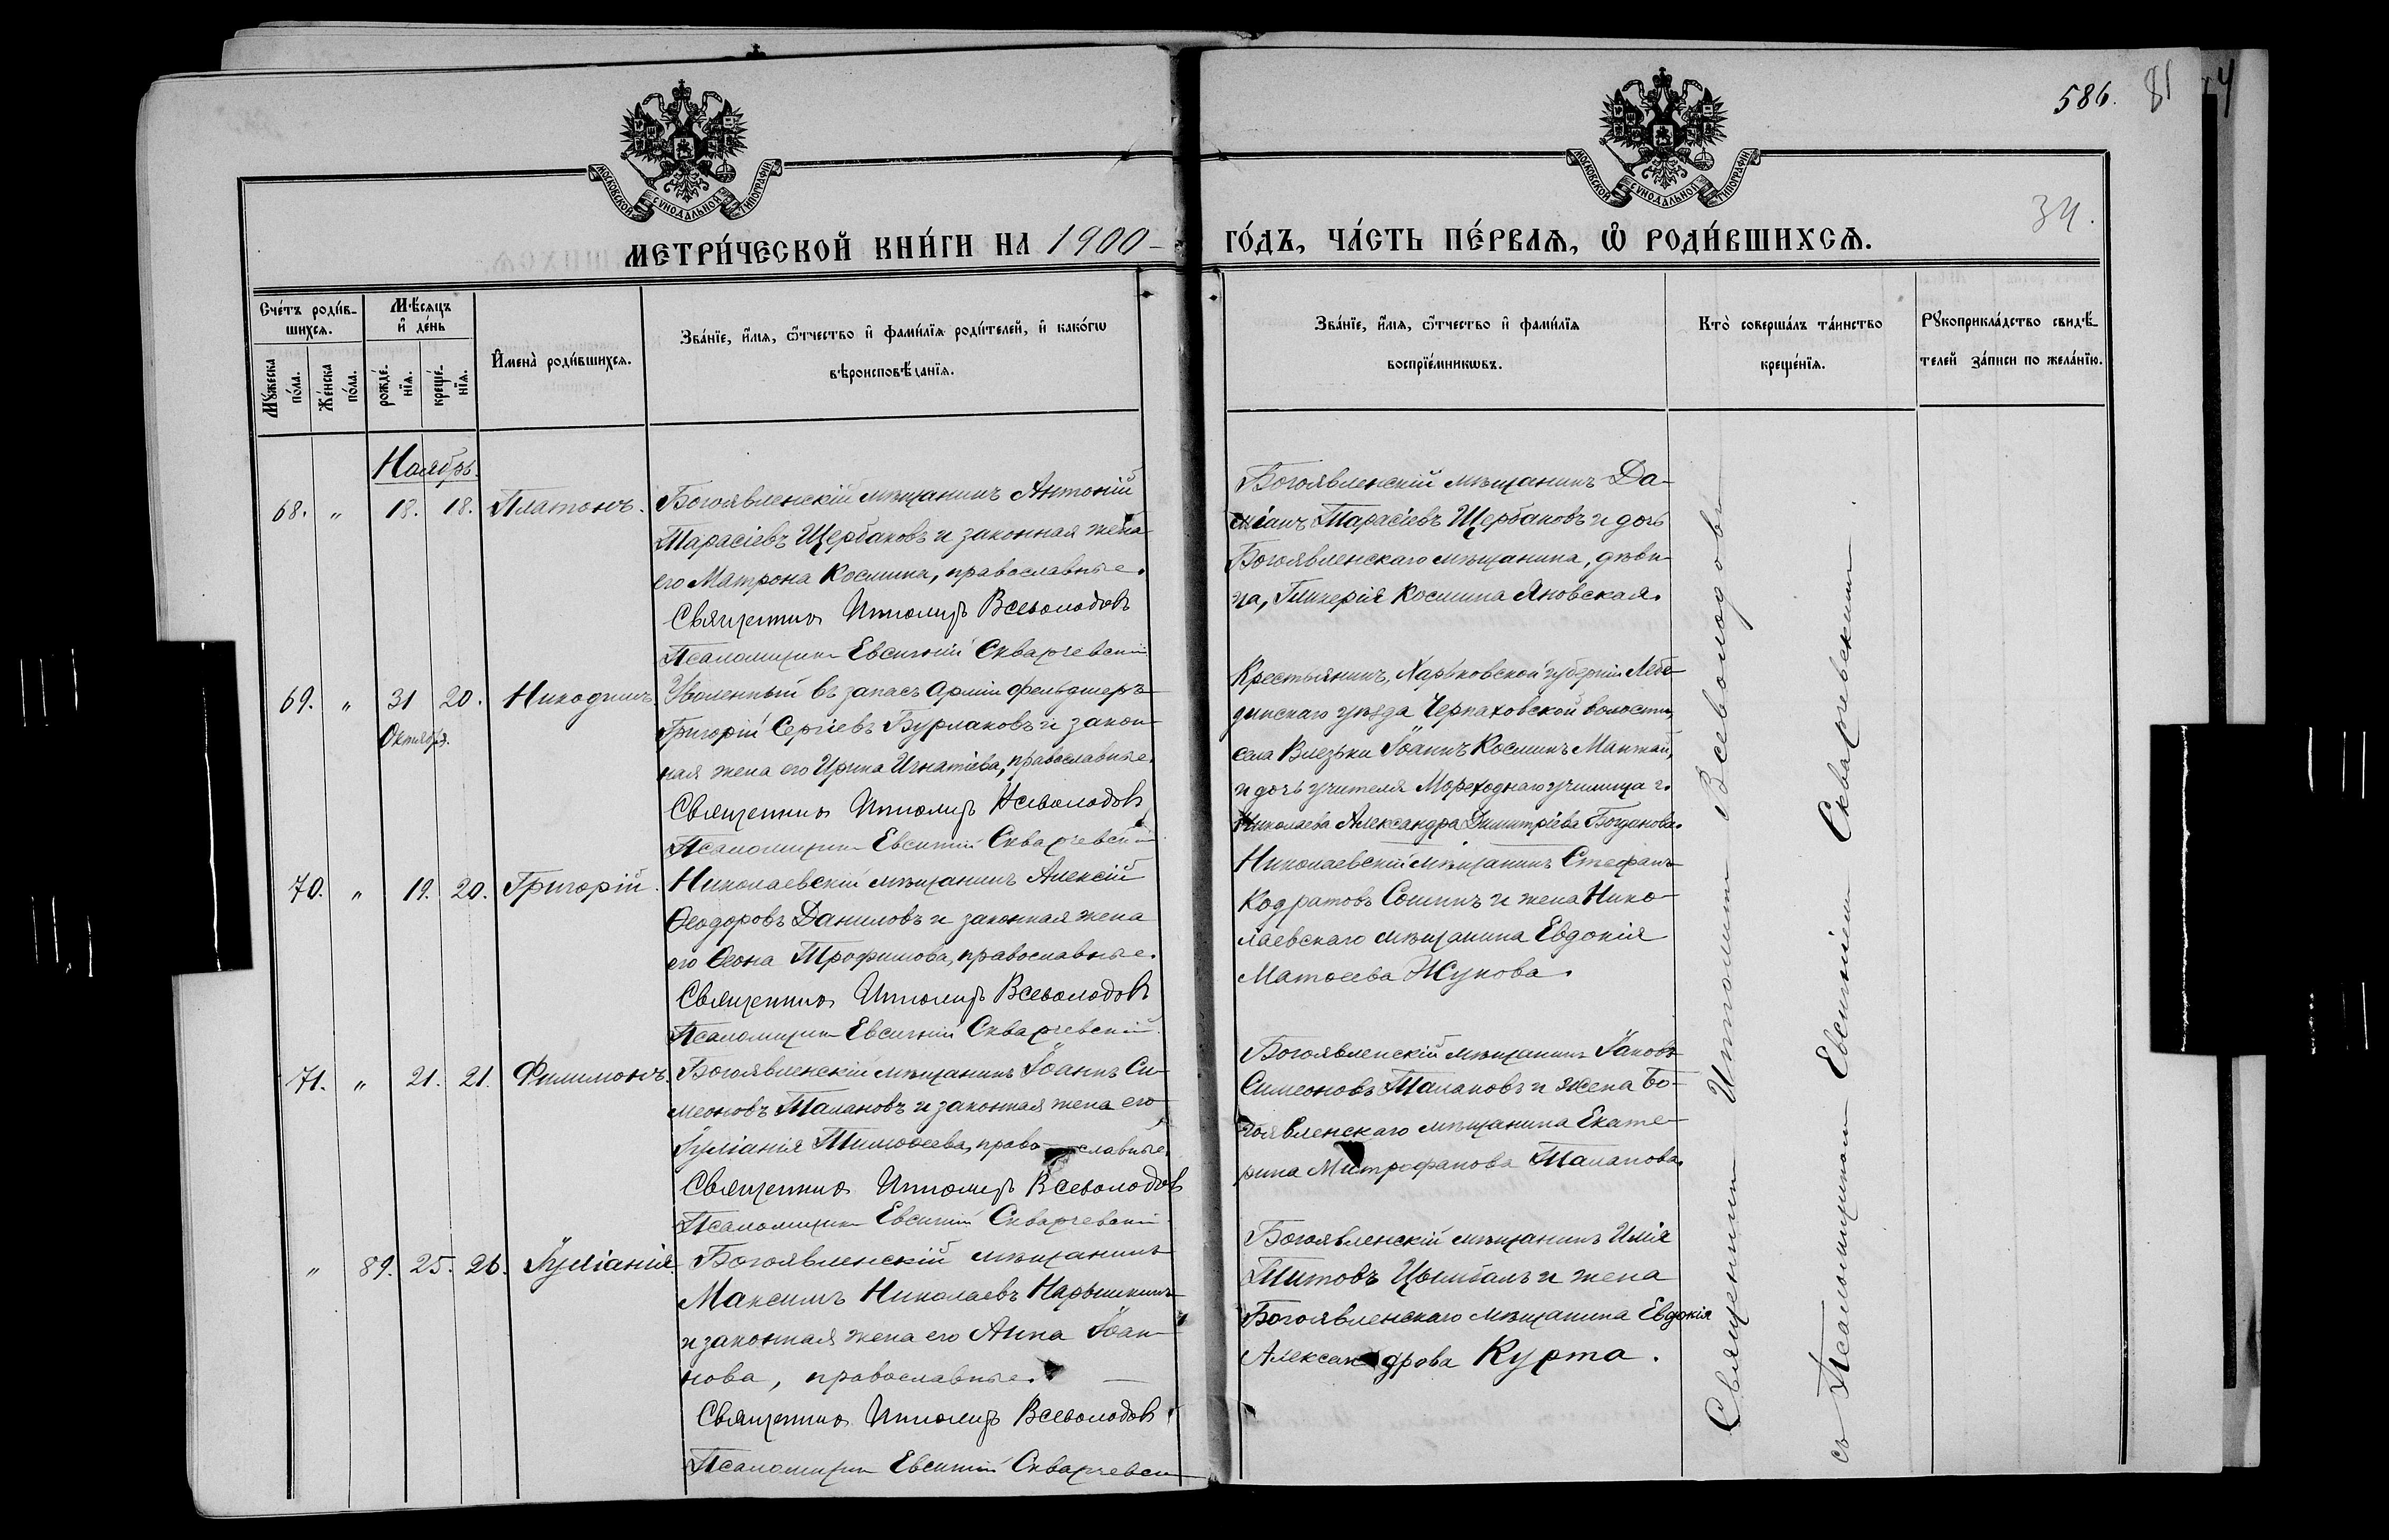 586.
81
4
34.
МОСКОВСКОЙ СУНОДАЛЬНОЙ ТИПОГРАФІИ
МОСКОВСКОЙ СУНОДАЛЬНОЙ ТИПОГРАФІИ
МЕТРИ́ЧЕСКОЙ КНИ́ГИ НА 1900 -
ГО́ДЪ, ЧА́СТЬ ПЕ́РВАѦ, Ѽ РОДИ́ВШИХСѦ.
Сче́тъ роди́в-
шихсѧ.
Мѹ́жеска по́ла.
Же́нска по́ла.
Мѣ́сѧцъ и҆ де́нь
рожде́-нїѧ.
креще́-нїѧ.
И҆мена̀ роди́вшихсѧ.
Зва́нїе, и҆́мѧ, ѻ҆́тчество и҆ фами́лїѧ роди́телей, и҆ како́гѡ
вѣроисповѣ́данїѧ.
Зва́нїе, и҆́мѧ, ѻ҆́тчество и҆ фами́лїѧ
воспрїе́мникѡвъ.
Кто̀ соверша́лъ та́инство
креще́нїѧ.
Рѹкоприкла́дство свидѣ́-
телей за́писи по жела́нїю.
Ноябрь.
68. " 18. 18. Платонъ.
Богоявленскій мѣщанинъ Антоній
Тарасіевъ Щербаковъ и законная жена
его Матрона Космина, православные.
Священникъ Ипполитъ Всеволодовъ
Псаломщикъ Евсигній Скварчевскій
Богоявленскій мѣщанинъ Да-
міанъ Тарасіевъ Щербаковъ и дочь
Богоявленскаго мѣщанина, дѣви-
ца, Гликерія Космина Яновская.
69. " 31 20. Никодимъ
Октября.
Уволенный въ запасъ Арміи фельдшеръ
Григорій Сергіевъ Бурлаковъ и закон-
ная жена его Ирина Игнатіева, православные.
Священникъ Ипполитъ Всеволодовъ
Псаломщикъ Евсигній Скварчевскій
Крестьянинъ, Харьковской губерніи Лебе-
динскаго уѣзда Черкаховской волости,
села Влезьки Іоаннъ Косминъ Мантай,
и дочь учителя Мореходнаго училища г.
Николаева Александра Димитріева Богданова.
70. " 19. 20. Григорій.
Николаевскій мѣщанинъ Алексій
Ѳеодоровъ Даниловъ и законная жена
его Ѳеона Трофимова, православные.
Священникъ Ипполитъ Всеволодовъ
Псаломщикъ Евсигній Скварчевскій
Николаевскій мѣщанинъ Стефанъ
Кодратовъ Сошинъ и жена Нико-
лаевскаго мѣщанина Евдокія
Матѳеева Жукова.
71. " 21. 21. Филимонъ.
Богоявленскій мѣщанинъ Іоаннъ Си-
меоновъ Талановъ и законная жена его
Іуліанія Тимоѳеева, православные.
Священникъ Ипполитъ Всеволодовъ
Псаломщикъ Евсигній Скварчевскій
Богоявленскій мѣщанинъ Іаковъ
Симеоновъ Талановъ и жена Бо-
гоявленскаго мѣщанина Екате-
рина Митрофанова Таланова.
" 89. 25. 26. Іуліанія.
Богоявленскій мѣщанинъ
Максимъ Николаевъ Нарышкинъ
и законная жена его Анна Іоан-
нова, православные. —
Священникъ Ипполитъ Всеволодовъ
Псаломщикъ Евсигній Скварчевскі
Богоявленскій мѣщанинъ Илія
Титовъ Цымбалъ и жена
Богоявленскаго мѣщанина Евдокія
Александрова Курта.
Священникъ Ипполитъ Всеволодовъ
съ Псаломщикомъ Евсигніемъ Скварчевскимъ.